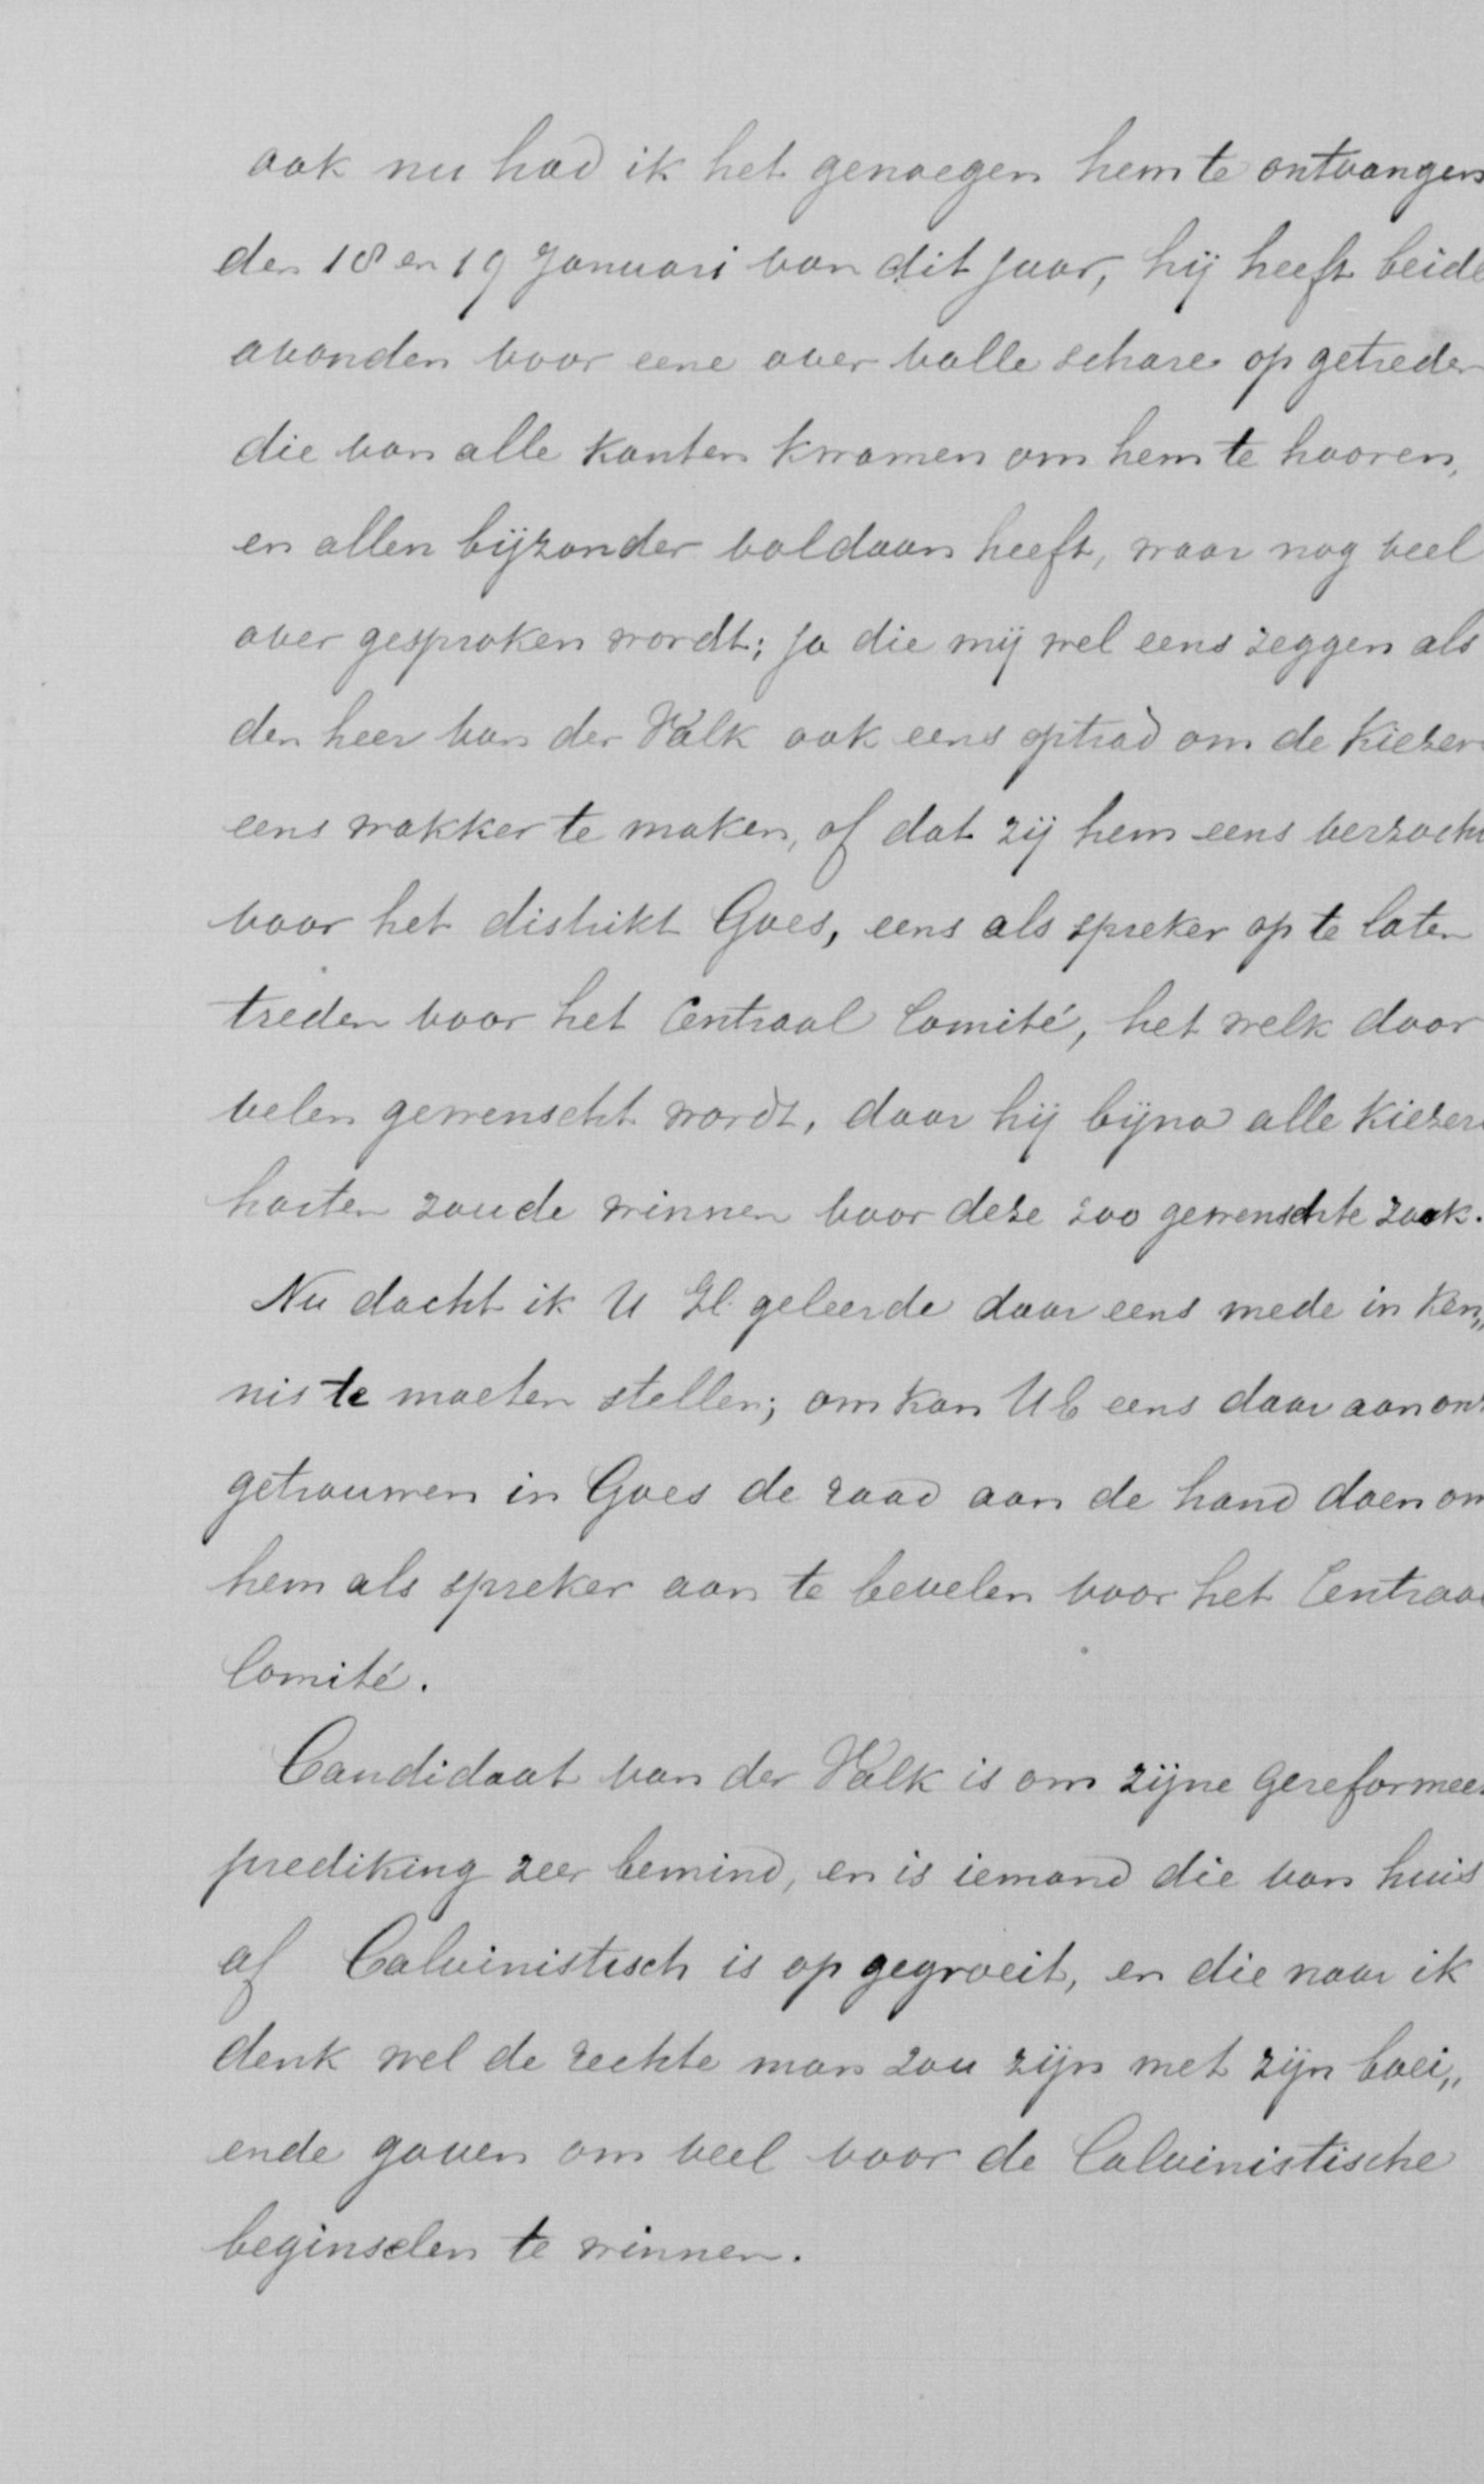 ook nu had ik het genoegen hem te ontvangen
den 18 en 19 Januari van dit jaar, hij heeft beide
avonden voor eene over volle schare op getreden
die van alle kanten kwamen om hem te hooren,
en allen bijzonder voldaan heeft, waar nog veel
over gesproken wordt; ja die mij wel eens zeggen als
den heer van der Valk ook eens optrad om de Kiezers
eens wakker te maken, of dat zij hem eens verzocht
voor het distrikt Goes, eens als spreker op te laten
treden voor het Centraal Comité, het welk door
velen gewenscht wordt, daar hij bijna alle Kiezers
harten zoude winnen voor deze zoo gewenschte zaak.
Nu dacht ik U El. geleerde daar eens mede in ken„
nis te moeten stellen; om kan UE eens daar aan onz
getrouwen in Goes de raad aan de hand doen om
hem als spreker aan te bevelen voor het Centraal
Comité.
Candidaat van der Valk is om zijne Gereformeer
prediking zeer bemind, en is iemand die van huis
af Calvinistisch is op gegroeit, en die naar ik
denk wel de rechte man zou zijn met zijn boei„
ende gaven om veel voor de Calvinistische
beginselen te winnen.